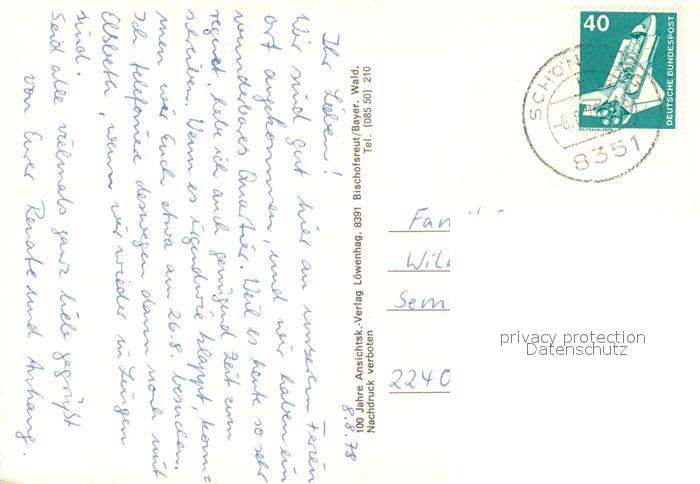 Ihr Lieben!
Wir sind gut hier an unserem Ferien
ort angekommen, und wir haben ein
wunderbares Quartier. Weil es heute so sehr
regnet, habe ich auch genügend Zeit zum
schreiben. Wenn es irgendwie klappt, kom=
men wir Euch etwa am 26.8. besuchen.
Ich telefoniere deswegen dann noch mit
Elsbeth, wenn wir wieder in Lingen
sind.
Seid alle vielmals ganz liebe gegrüßt
von Eurer Renate und Anhang.
100 Jahre Ansichtsk.-Verlag Löwenhag, 8391 Bischofsreut/Bayer. Wald.
Nachdruck verboten Tel. (085 50) 210
8.8.78
40
DEUTSCHE BUNDESPOST
WELTRAUMLABOR
SCHÖN
-8.8
8351
Fam
Will
Sem
2240
privacy protection
Datenschutz